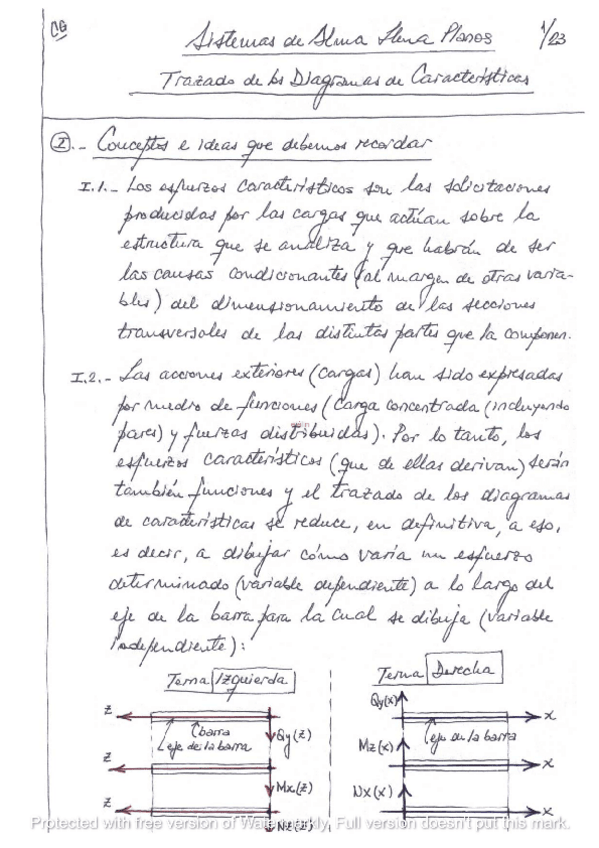 CG
Sistemas de Alma Llena Planos 1/23
Trazado de los Diagramas de Características
I.- Conceptos e ideas que debemos recordar
I.1.- Los esfuerzos característicos son las solicitaciones
producidas por las cargas que actúan sobre la
estructura que se analiza y que habrán de ser
las causas condicionantes (al margen de otras varia-
bles) del dimensionamiento de las secciones
transversales de las distintas partes que la componen.
I.2.- Las acciones exteriores (cargas) han sido expresadas
por medio de funciones (carga concentrada (incluyendo
pares) y fuerzas distribuidas). Por lo tanto, los
esfuerzos característicos (que de ellas derivan) serán
también funciones y el trazado de los diagramas
de características se reduce, en definitiva, a eso,
es decir, a dibujar cómo varía un esfuerzo
determinado (variable dependiente) a lo largo del
eje de la barra para la cual se dibuja (variable
independiente):
Terna Izquierda
z
barra
eje de la barra
Qy(z)
z
Mx(z)
z
Nz(z)
Terna Derecha
Qy(x)
x
eje de la barra
Mz(x)
x
Nx(x)
x
Protected with free version of Watermarkly. Full version doesn't put this mark.